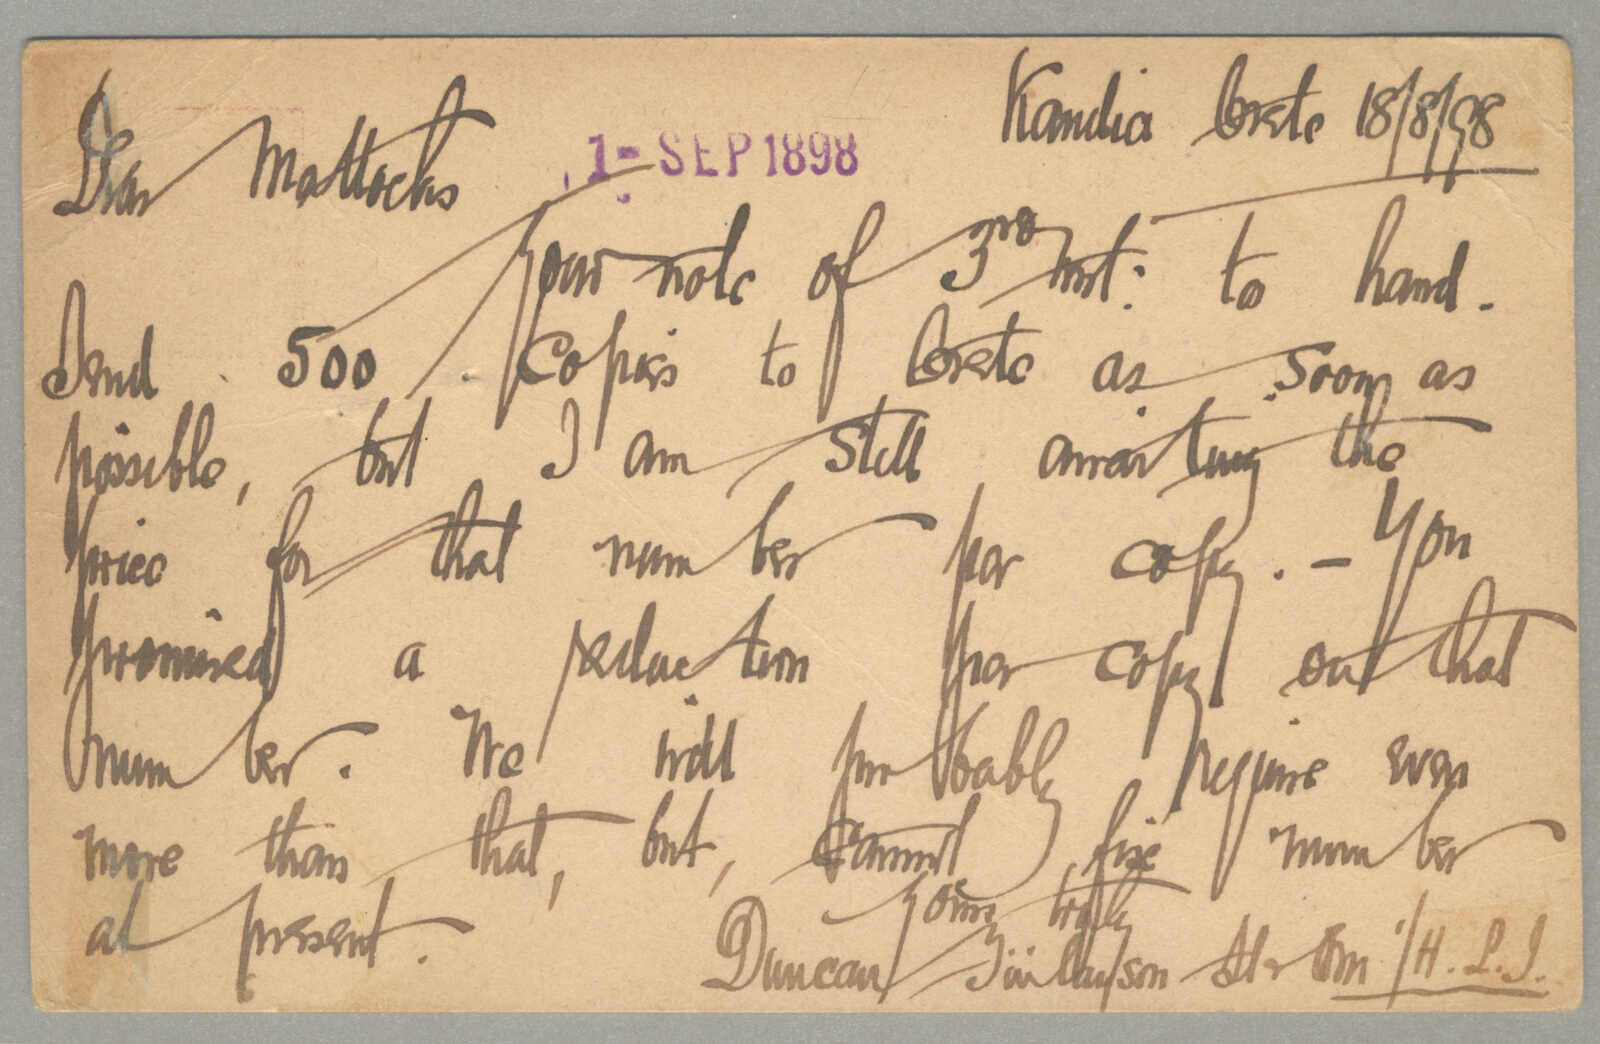 Kandia Crete 18/8/98
Dear Mattocks
1- SEP 1898
Your note of 3rd inst: to hand.
Send 500 Copies to Crete as soon as
possible, but I am still awaiting the
price for that number per copy. - You
promised a reduction per copy on that
number. We will probably require even
more than that, but, cannot fix number
at present.
Yours truly
Duncan Finlayson 1/H.L.I.